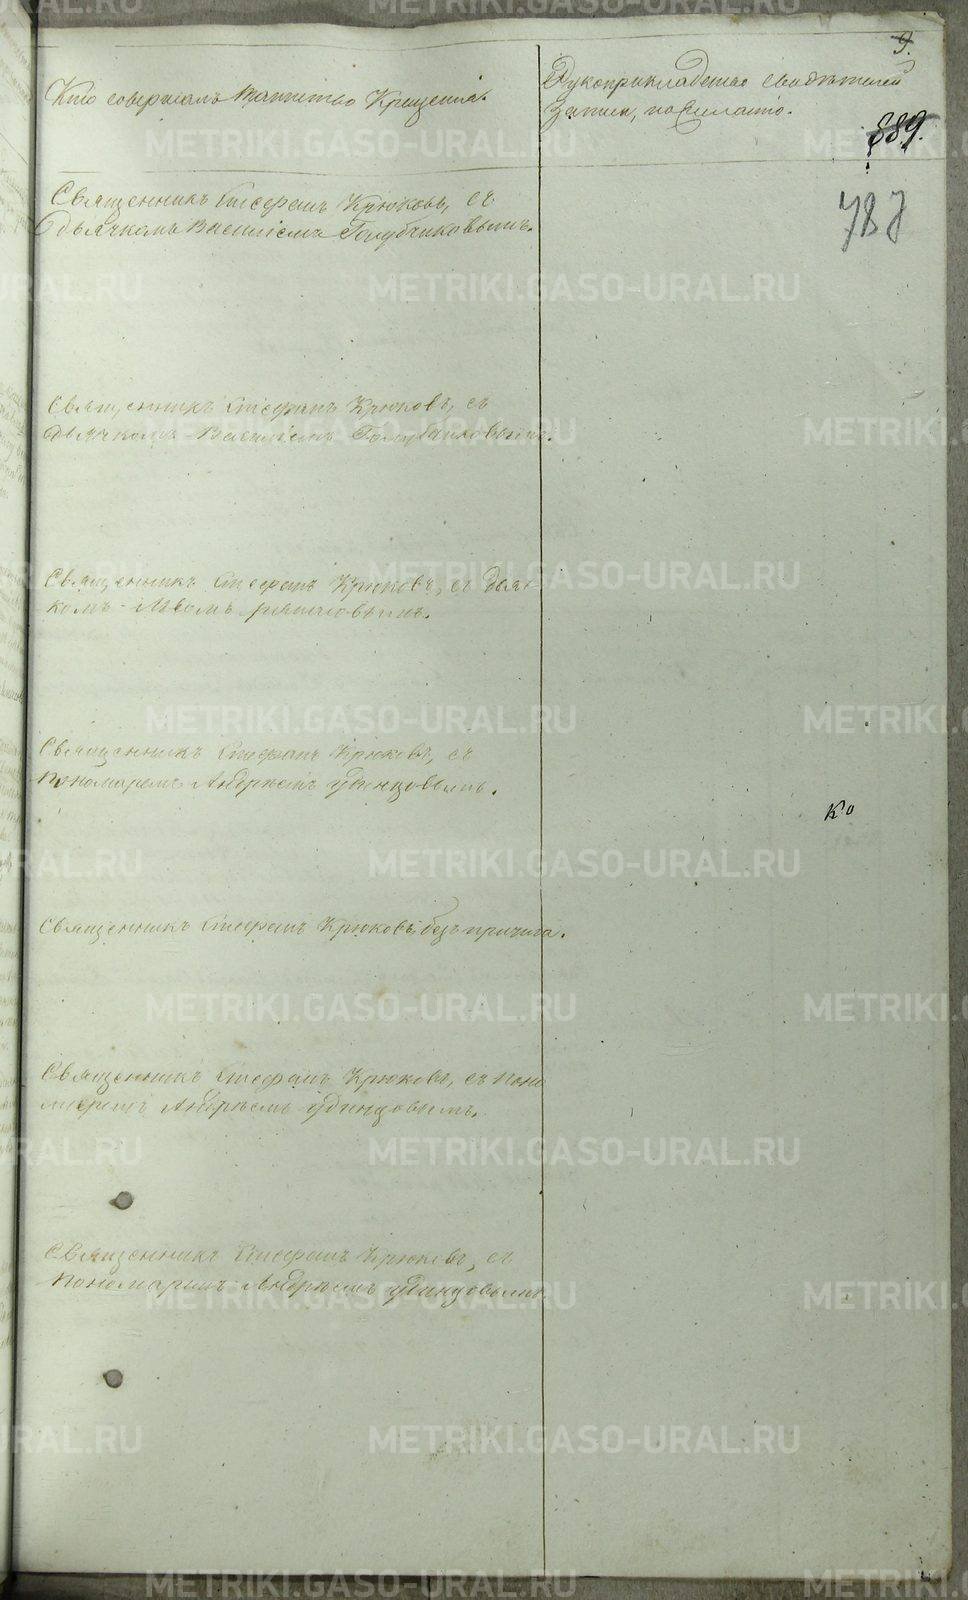 9.
Кто совершалъ таинство Крещенія.
Рукоприкладство свидѣтелей
записи, по желанію.
889.
787
Священникъ Стефанъ Крюковъ, съ
дьячкомъ Василіемъ Голубчиковымъ.
Священникъ Стефанъ Крюковъ, съ
дьячкомъ Василіемъ Голубчиковымъ.
Священникъ Стефанъ Крюковъ, съ дьяч-
комъ Львомъ
Священникъ Стефанъ Крюковъ, съ
пономаремъ Андреемъ Удинцовымъ.
Ко
Священникъ Стефанъ Крюковъ, безъ причта.
Священникъ Стефанъ Крюковъ, съ поно
маремъ Андреемъ Удинцовымъ.
Священникъ Стефанъ Крюковъ, съ
пономаремъ Андреемъ Удинцовымъ.
METRIKI.GASO-URAL.RU